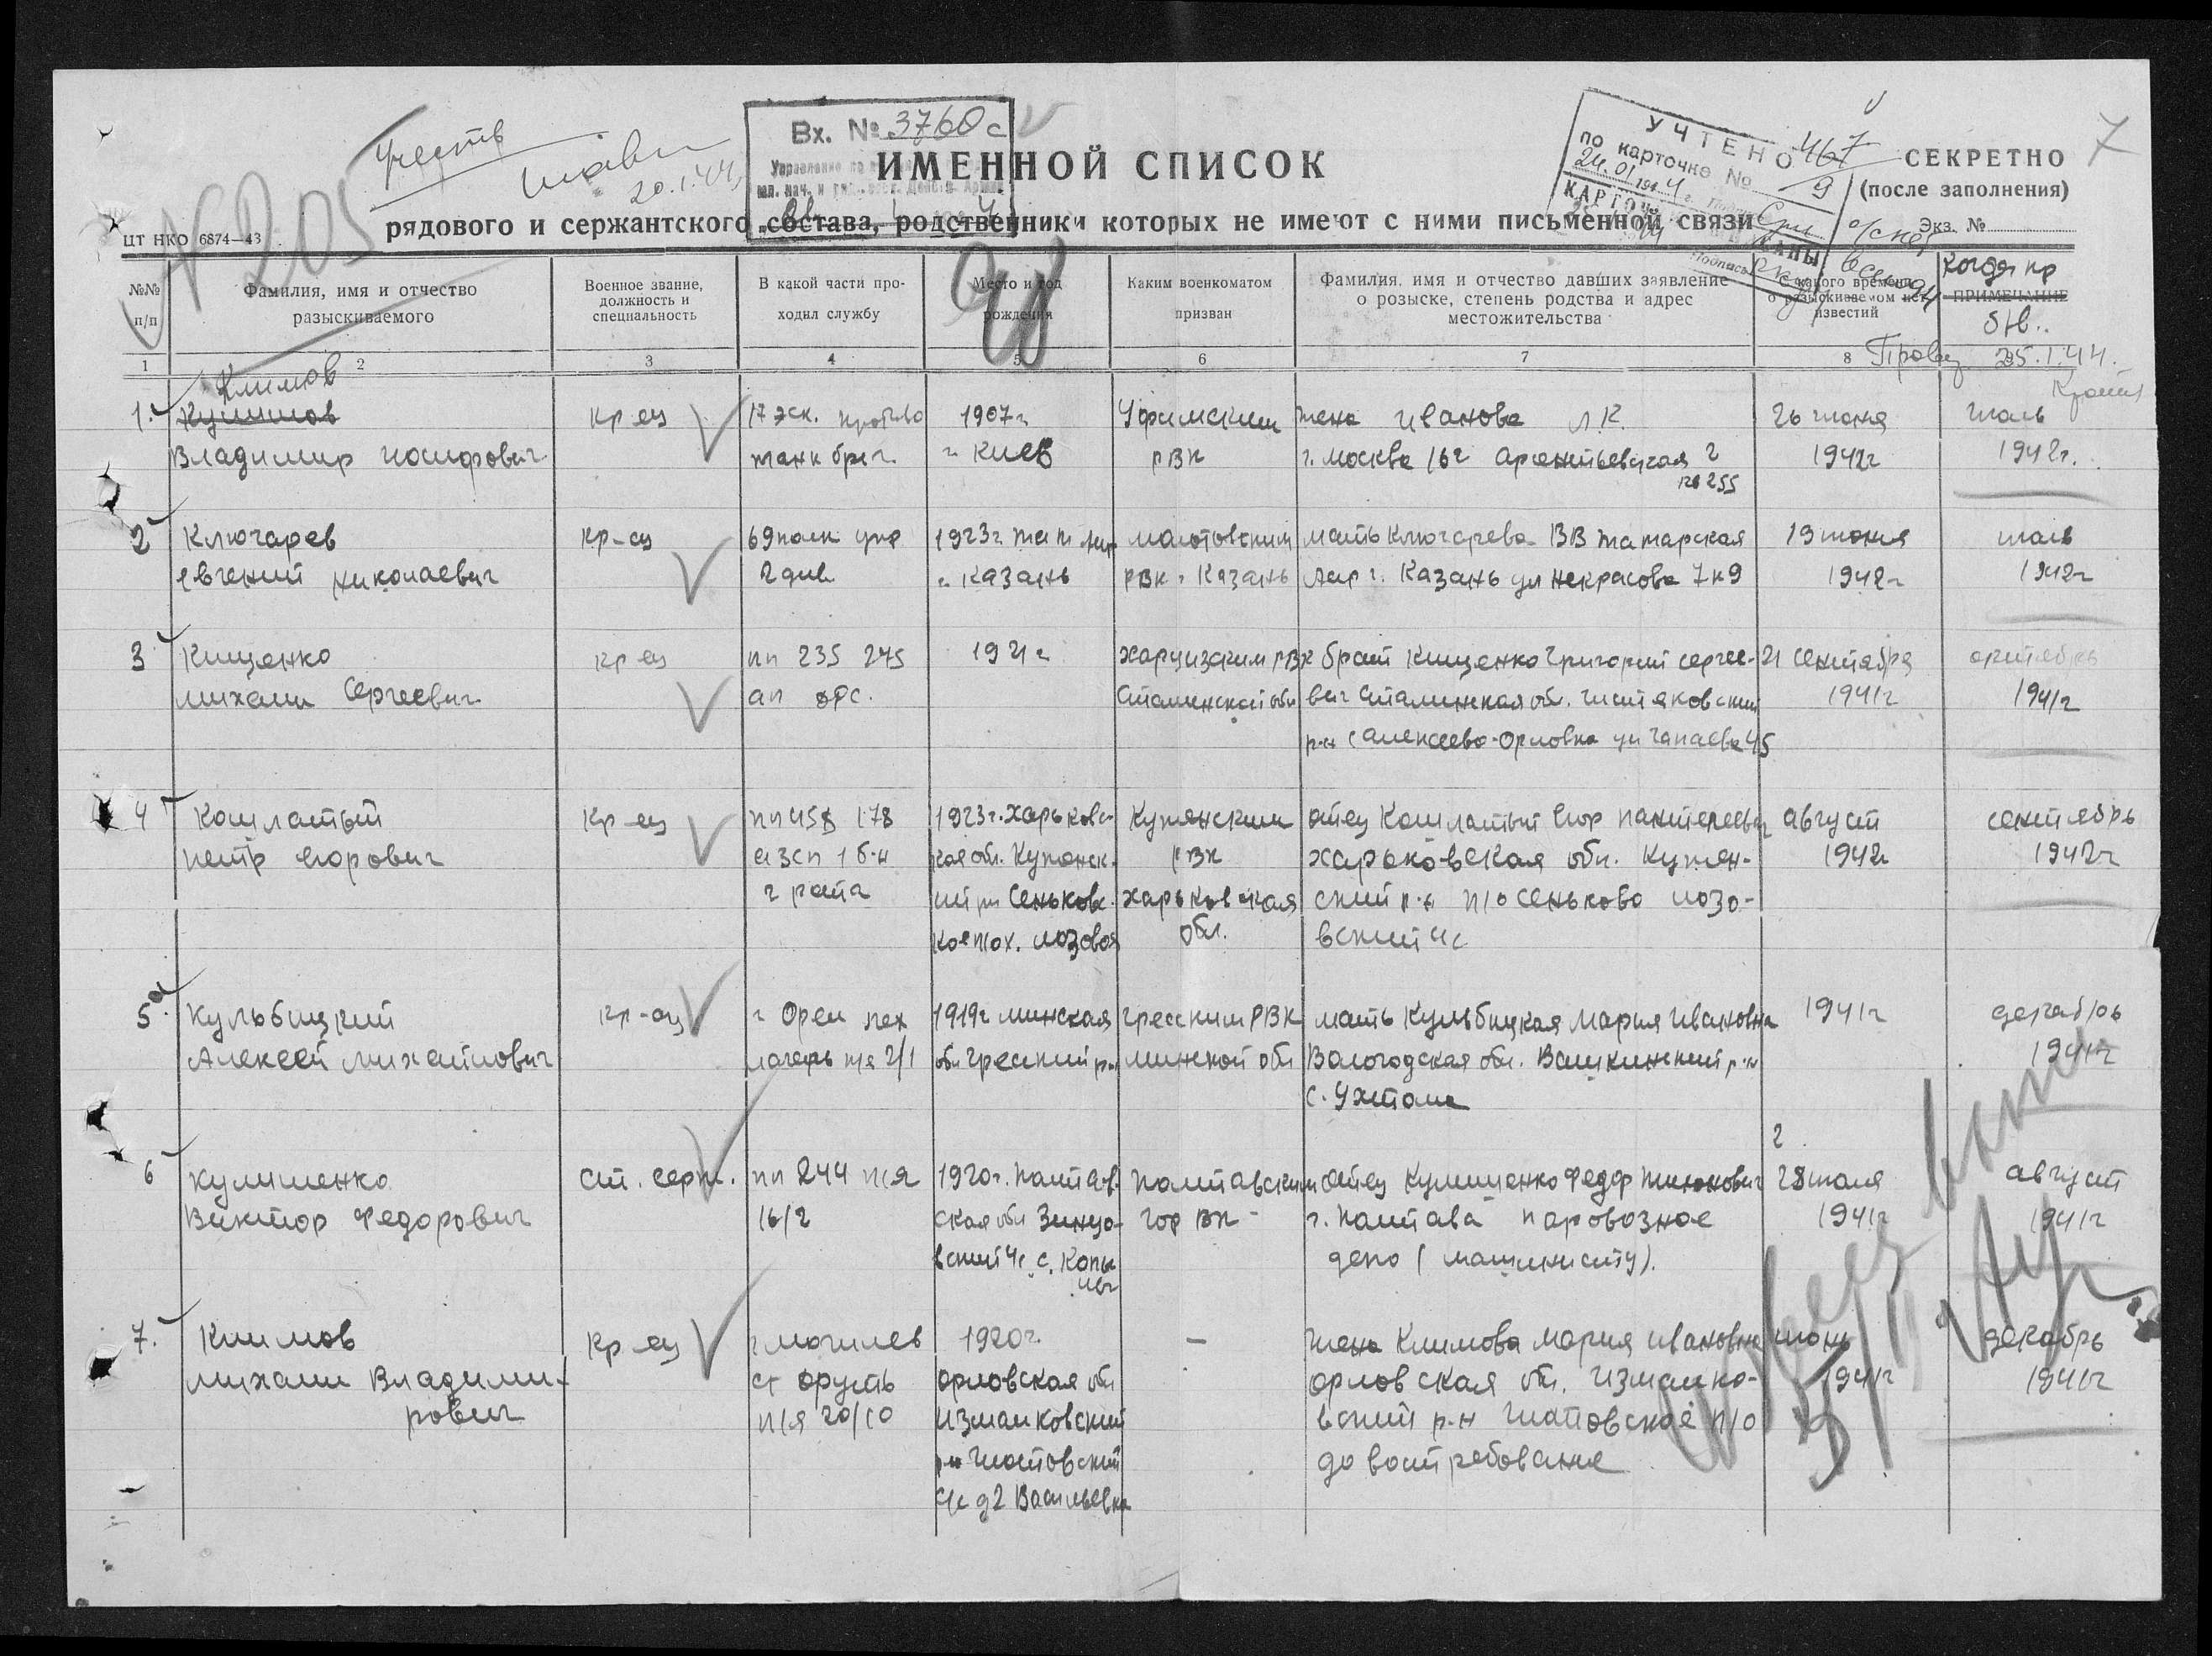 Учесть
20.1.44
№ 205
Вх. № 3760с
ИМЕННОЙ СПИСОК
рядового и сержантского состава, родственники которых не имеют с ними письменной связи
УЧТЕНО
по карточке № 467/9
24.01.1944 г.
СЕКРЕТНО
7
(после заполнения)
Экз. №
ЦТ НКО 6874—43
№№ п/п
Фамилия, имя и отчество разыскиваемого
Военное звание, должность и специальность
В какой части проходил службу
Место и год рождения
Каким военкоматом призван
Фамилия, имя и отчество давших заявление о розыске, степень родства и адрес местожительства
С какого времени о разыскиваемом нет известий
Когда пр
ПРИМЕЧАНИЕ
б/в.
1 2 3 4 5 6 7 8
25.1.44.
Климов
1. Владимир Иосифович
кр-ец
17 эск.
танк бриг.
1907г
г. Киев
Уфимским
РВК
жена Иванова Л.К.
г. Москва 162
кв 255
26 июня
1942г
июль
1942г.
2 Ключарев
Евгений Николаевич
кр-ец
69 полк
2 див
1923г тат. АССР
г. Казань
Молотовским
РВК г. Казань
мать Ключарева ВВ татарская
АССР г. Казань ул Некрасова 7 к 9
19 июня
1942г
июль
1942г
3 Кищенко
Михаил Сергеевич
кр-ец
пп 235 245
ап
1921г
Харцизским РВК
Сталинской обл
брат Кищенко Григорий Сергее-
вич Сталинская обл. Чистяковский
р-н с Алексеево-Орловка ул Чапаева 45
21 сентября
1941г
октябрь
1941г
4 Кошлатый
Петр Егорович
Кр-ец
пп 458 178
азсп 1 б-н
2 рота
1923г. Харьковс-
кая обл. Купянск-
ий р-н Сеньковс-
кое п/о х. Лозовая
Купянским
РВК
Харьковская
обл.
отец Кошлатый Егор Пантелеевич
Харьковская обл. Купян-
ский р-н п/о Сеньково Лозо-
вский с/с
август
1942г
сентябрь
1942г
5. Кульбицкий
Алексей Михайлович
кр-ец
г Орел пех
лагерь п/я 2/1
1919г Минская
обл Гресский р-н
Гресским РВК
Минской обл
мать Кульбицкая Мария Ивановна
Вологодская обл. Вашкинский р-н
с. Ухтома
1941г
декабрь
1941г
6 Кулишенко
Виктор Федорович
ст. серж.
пп 244 п/я
16/2
1920г. Полтав-
ская обл
с/с с.
Полтавским
Гор ВК
отец Кулишенко Федор
г. Полтава паровозное
депо (машинисту).
28 июля
1941г
август
1941г
7. Климов
Михаил Владими-
рович
Кр-ец
г Могилев
ст
п/я 20/10
1920г.
Орловская обл
Измалковский
р-н Шатовский
с/с д 2 Васильевка
—
жена Климова Мария Ивановна
Орловская обл. Измалко-
вский р-н Шатовское п/о
до востребование
июнь
1941г
декабрь
1941г